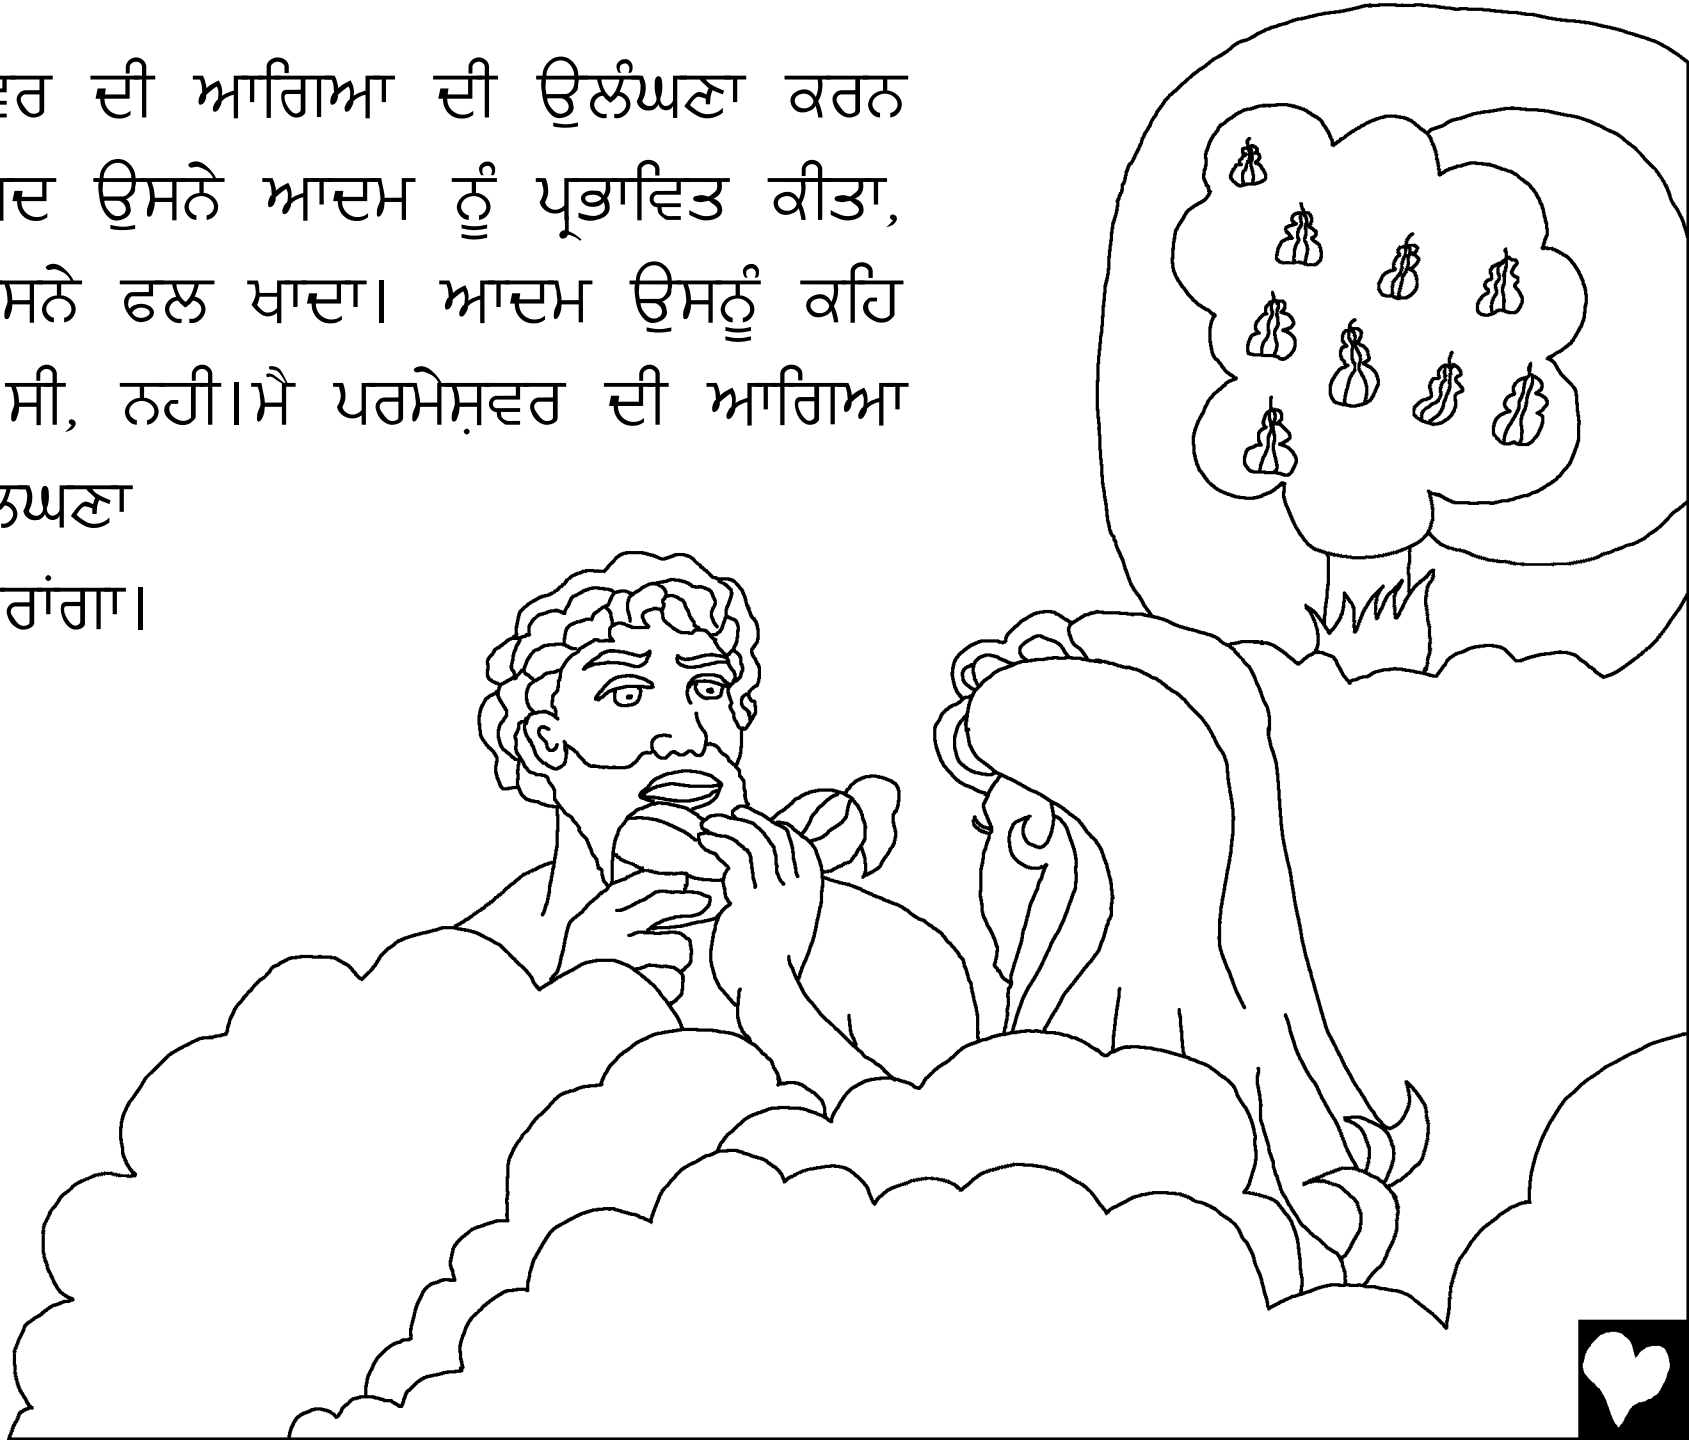 ਦੀ ਆਗਿਆ ਦੀ ਉਲੰਘਣਾ ਕਰਨ
ਉਸਨੇ ਆਦਮ ਨੂੰ ਪ੍ਰਭਾਵਿਤ ਕੀਤਾ,
ਫਲ ਖਾਦਾ। ਆਦਮ ਉਸਨੂੰ ਕਹਿ
ਸੀ, ਨਹੀ।ਮੈ ਪਰਮੇਸ਼ਵਰ ਦੀ ਆਗਿਆ